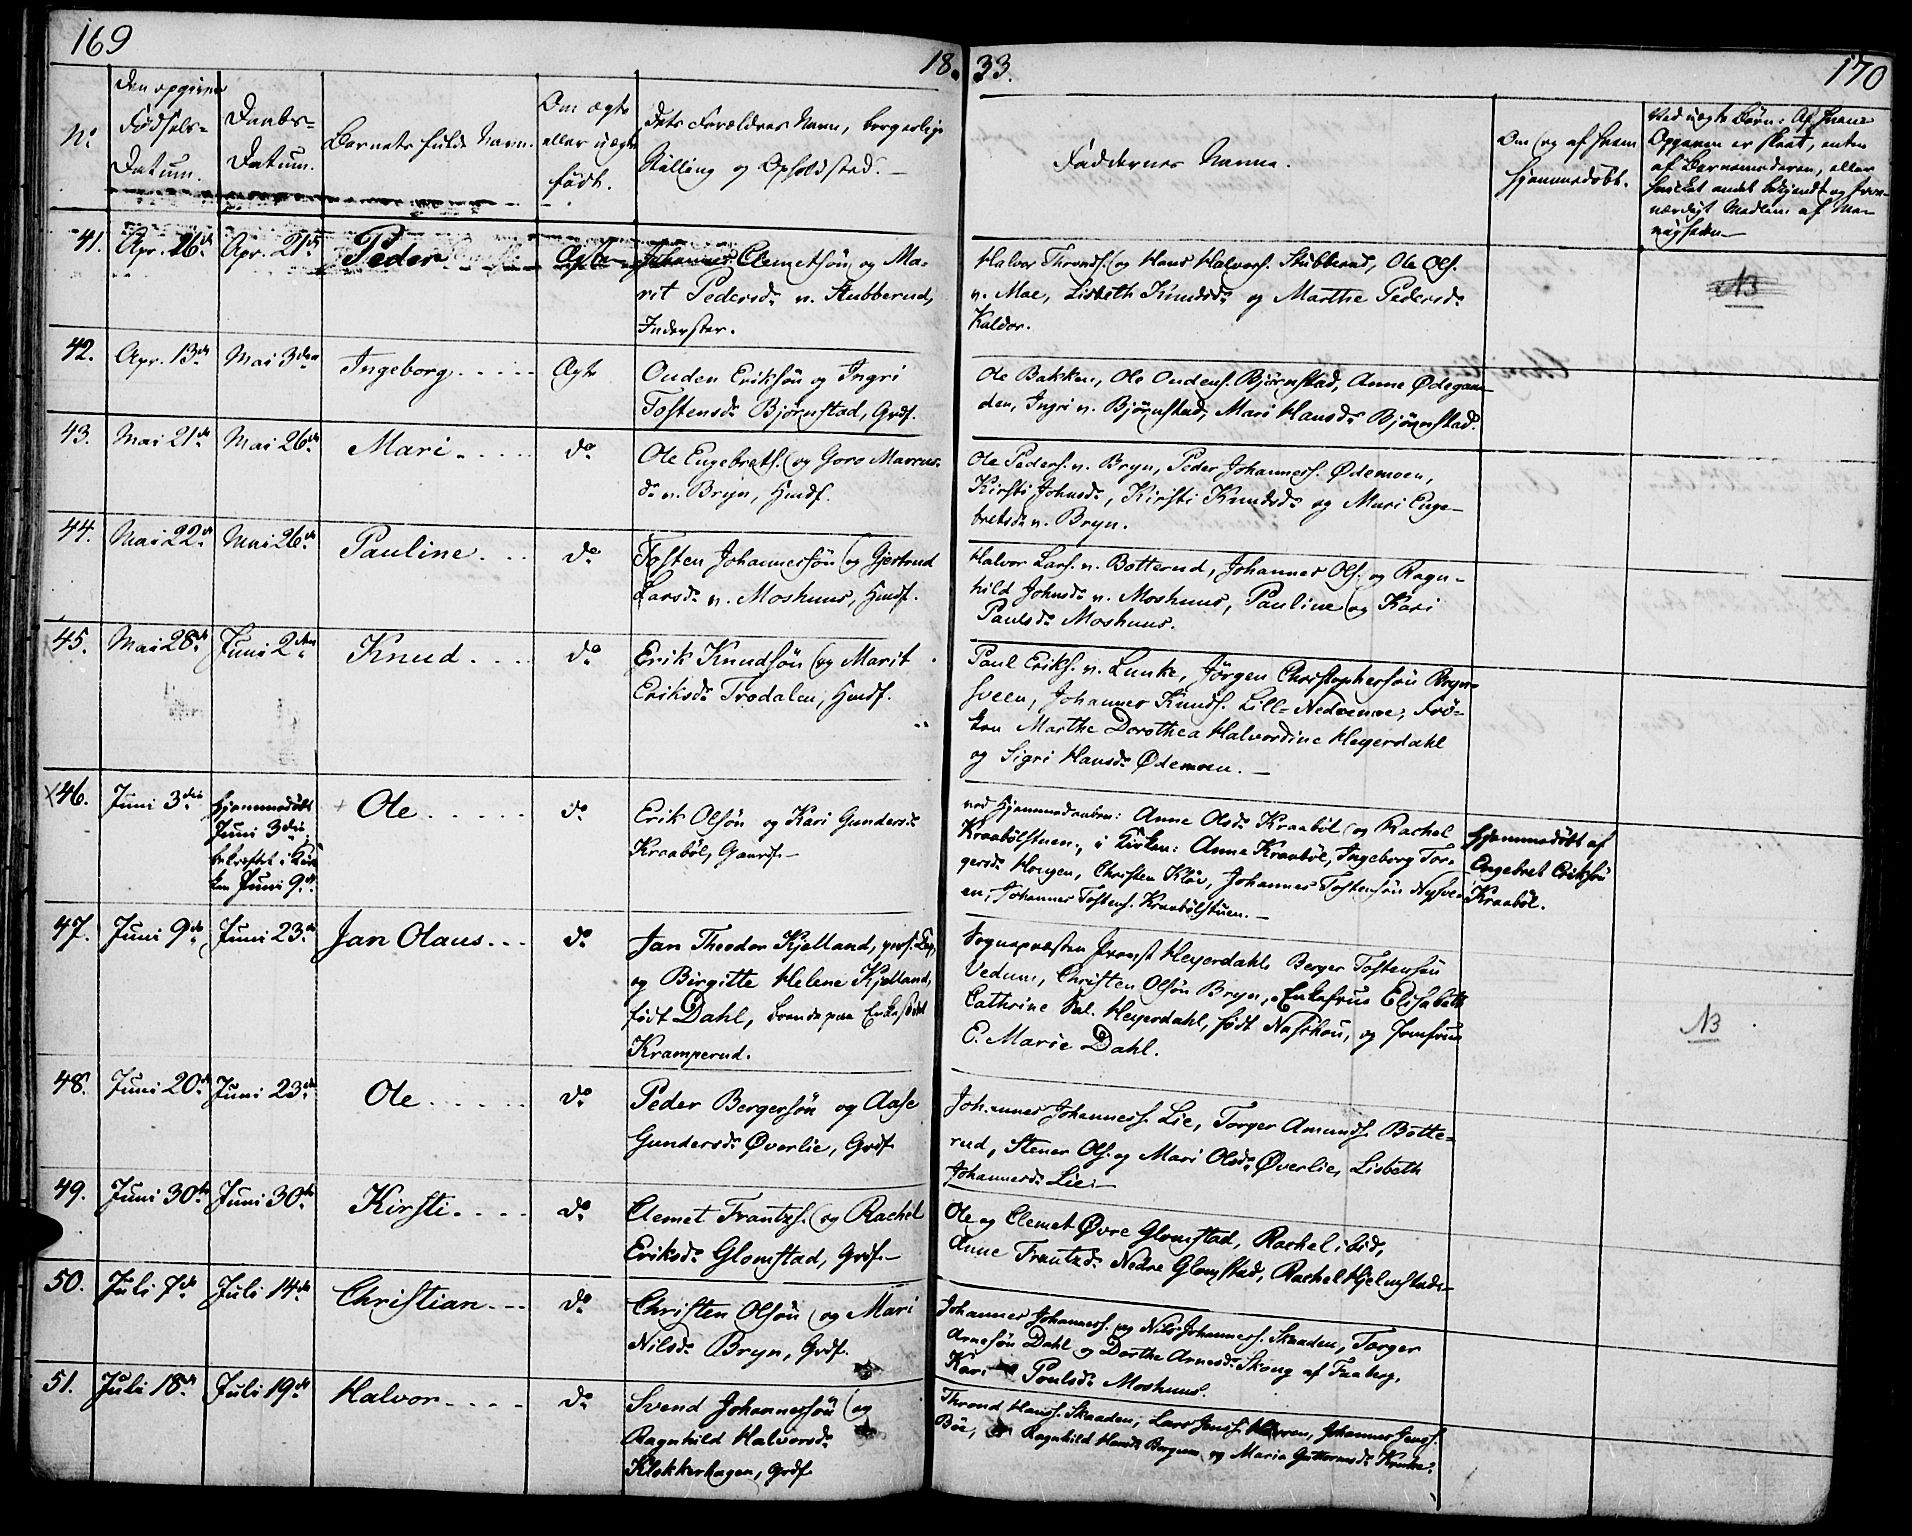 169
18. 33.
170
No
Den opgivne Fødsels-Datum.
Daabs-Datum.
Barnets fulde Navn.
Om ægte eller uægte født.
Dets Forældres Navn, borgerlige Stilling og Opholdssted.
Faddernes Navne.
Om og af hvem hjemmedøbt.
Ved uægte Børn: Af hvem Opgaven er skeet, enten af Barnemoderen, eller hvilket andet bekjendt og troværdigt Medlem af Menigheden
41. Apr. 16de Apr. 21de Peder Ægte
Johannes Clemetsøn og Ma-
rit Pedersdr v. Stubberud,
Inderster.
Halvor Thronds. og Hans Halvors. Stubberud, Ole Ols.
v. Moe, Lisbeth Knudsdr og Marthe Pedersdr
Kaldor.
NB
42. Apr. 13de Mai 3die Ingeborg Ægte
Ouden Eriksøn og Ingri
Tostensdr Bjørnstad, Grdf.
Ole Bakken, Ole Oudens. Bjørnstad, Anne Ødegaar-
den, Ingri v. Bjørnstad, Mari Hansdr Bjørnstad.
43. Mai 21de Mai 26de Mari do
Ole Engebrets. og Goro
dr v. Bryn, Hmdf.
Ole Peders. v. Bryn, Peder Johanness. Ødemoen,
Kirsti Johnsdr, Kirsti Knudsdr og Mari Enge-
bretsdr v. Bryn.
44. Mai 22de Mai 26de Pauline do
Tosten Johannessøn og Gjertrud
Larsdr v. Moshuus, Hmdf.
Halvor Lars. v. Botterud, Johannes Ols. og Ragn-
hild Johnsdr v. Moshuus, Pauline og Kari
Paulsdr Moshuus.
45. Mai 28de Juni 2den Knud do
Erik Knudsøn og Marit
Eriksdr Trødalen, Hmdf.
Paul Eriks. v. Lunke, Jörgen Christophersøn Bryn-
sveen, Johannes Knuds. Lille-Nedreenre, Frø-
ken Marthe Dorothea Halvordine Heyerdahl
og Sigri Hansdr Ødemoen.
46. Juni 3die Hjemmedøbt
Juni 3die
bekræftet i Kir-
ken Juni 9de
Ole do
Erik Olsøn og Kari Gundersdr
Kraabøl, Gaardf.
ved Hjemmedaaben: Anne Olsdr Kraabøl og Rachel
Kraabølstuen, i Kirken: Anne Kraabøl, Ingeborg Tor-
gersdr Hougen, Christen Kløv, Johannes Tostensøn Nysve-
en, Johannes Tostens. Kraabølstuen.
Hjemmedøbt af
Engebret Eriksøn
Kraabøl.
47. Juni 9de Juni 23de Jan Olaus do
Jan Theodor Kjelland,
og Birgitte Helene Kjelland,
født Dahl, boende paa Enkesædet
Kramperud.
Sognepræsten Provst Heyerdahl, Berger Tostensøn
Vedum, Christen Olsøn Bryn, Enkefrue Elisabeth
Cathrine Sal. Heyerdahl, født Naschou, og Jomfrue
E. Marie Dahl.
NB
48. Juni 20de Juni 23de Ole do
Peder Bergersøn og Aase
Gundersdr Øverlie, Grdf.
Johannes Johanness. Lie, Torger Amunds. Botte-
rud, Stener Ols. og Mari Olsdr Øverlie, Lisbeth
Johannesdr Lie.
49. Juni 30te Juni 30te Kirsti do
Clemet Frantzs. og Rachel
Eriksdr Glomstad, Grdf.
Ole og Clemet Øvre Glomstad, Rachel ibid,
Anne Frantzdr Nedre Glomstad, Rachel Hjelmstad.
50. Juli 7de Juli 14de Christian do
Christen Olsøn og Mari
Nilsdr Bryn, Grdf.
Johannes Johanness. og Nils Johanness. Skaaden, Torger
Arnesøn Dahl og Dorthe Arnesdr Skoug af Faaberg,
Kari Poulsdr Moshuus.
51. Juli 18de Juli 19de Halvor do
Svend Johannessøn og
Ragnhild Halvorsdr
Klokkerhagen, Grdf.
Thrond Hanss. Skaaden, Lars Jenss. Johannes Jenss.
Böe, Ragnhild Hansdr Bergum og Maria Guttormsdr